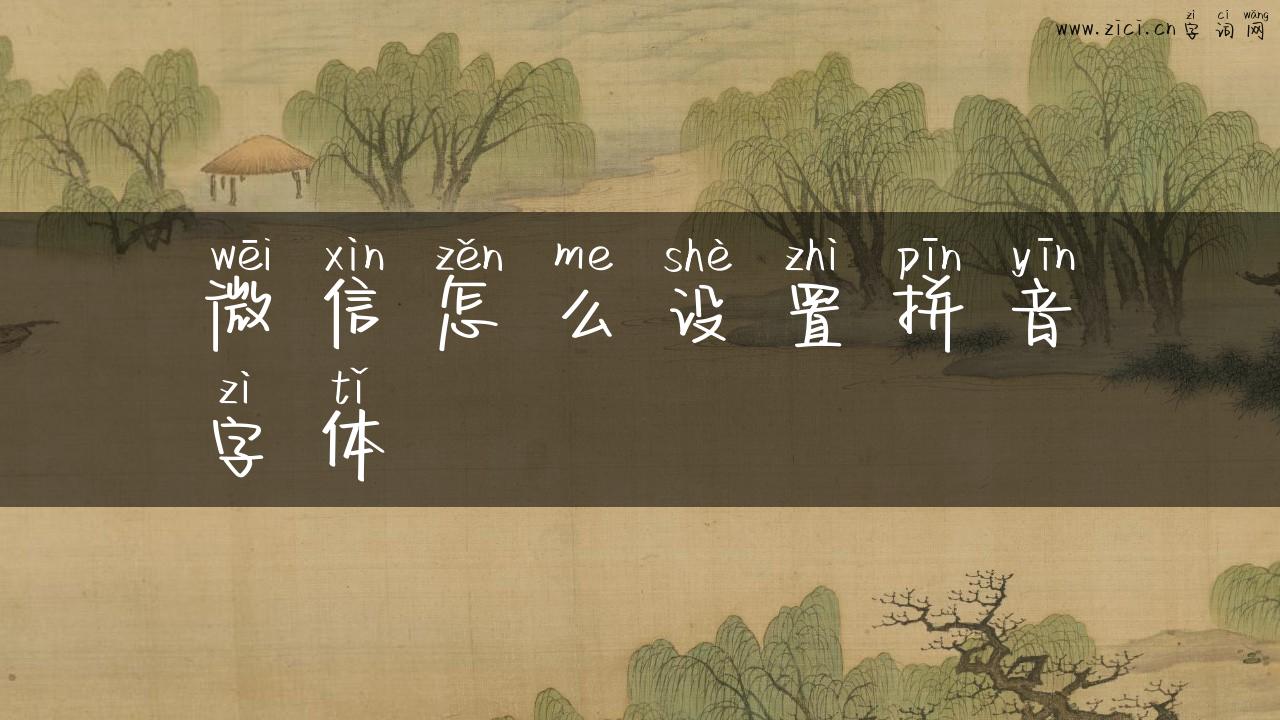 zì cí wǎng
www.zici.cn 字词网
wēi xìn zěn me shè zhì pīn yīn
微信怎么设置拼音
zì tǐ
字体